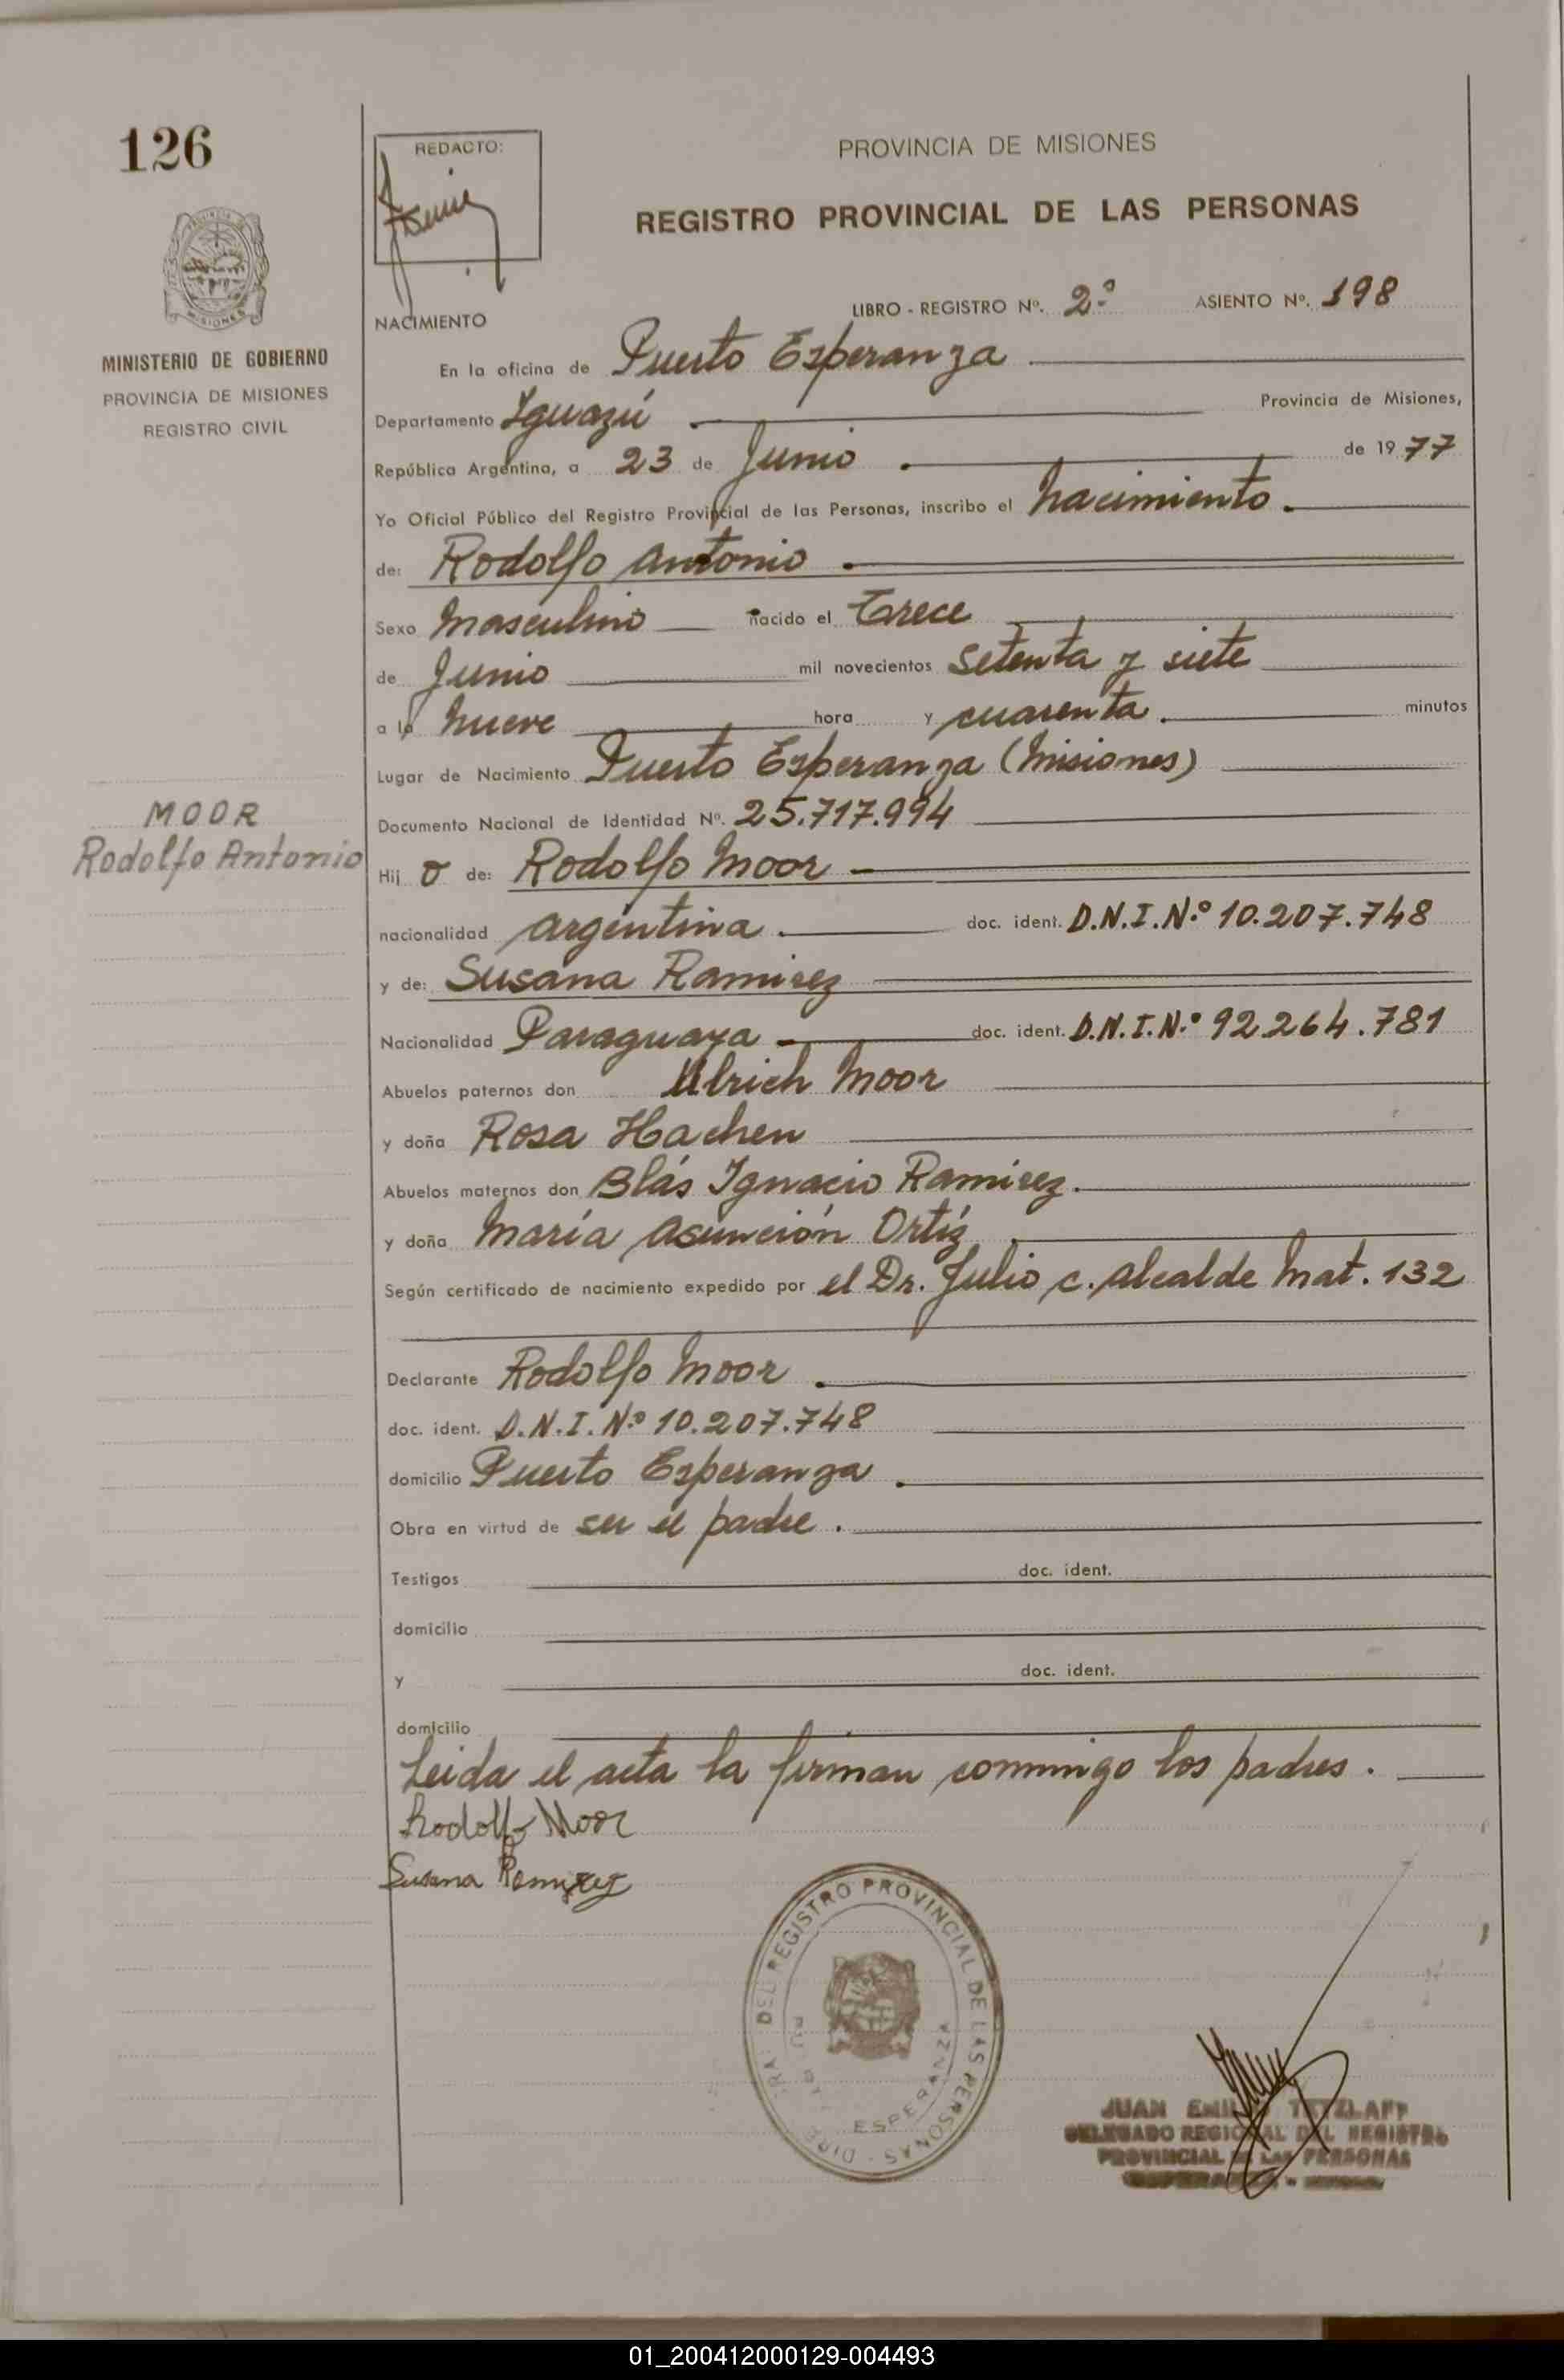 126
REDACTO:
PROVINCIA DE MISIONES
REGISTRO PROVINCIAL DE LAS PERSONAS
MISIONES
MINISTERIO DE GOBIERNO
PROVINCIA DE MISIONES
REGISTRO CIVIL
LIBRO - REGISTRO Nº. 2º ASIENTO Nº. 198
NACIMIENTO
En la oficina de Puerto Esperanza
Departamento Iguazú . Provincia de Misiones,
República Argentina, a 23 de Junio . de 1977
Yo Oficial Público del Registro Provincial de las Personas, inscribo el nacimiento.
de: Rodolfo Antonio .
Sexo masculino nacido el Trece
de Junio mil novecientos setenta y siete
a la nueve hora y cuarenta . minutos
Lugar de Nacimiento Puerto Esperanza (Misiones)
Documento Nacional de Identidad Nº. 25.717.994
MOOR
Rodolfo Antonio
Hij o de: Rodolfo Moor
nacionalidad argentina . doc. ident. D.N.I.N.º 10.207.748
y de: Susana Ramirez
Nacionalidad Paraguaya doc. ident. D.N.I.N.º 92.264.781
Abuelos paternos don Ulrich Moor
y doña Rosa Hachen
Abuelos maternos don Blás Ignacio Ramirez.
y doña María Asunción Ortíz
Según certificado de nacimiento expedido por el Dr. Julio C. Alcalde Mat. 132
Declarante Rodolfo Moor .
doc. ident. D.N.I. Nº 10.207.748
domicilio Puerto Esperanza .
Obra en virtud de ser el padre .
Testigos doc. ident.
domicilio
y doc. ident.
domicilio
Leida el acta la firman conmigo los padres .
Rodolfo Moor
Susana Ramirez
DEL REGISTRO PROVINCIAL DE LAS PERSONAS
ESPERANZA
JUAN TETZLAFF
DELEGADO REGIONAL DEL REGISTRO
PROVINCIAL DE LAS PERSONAS
01_200412000129-004493